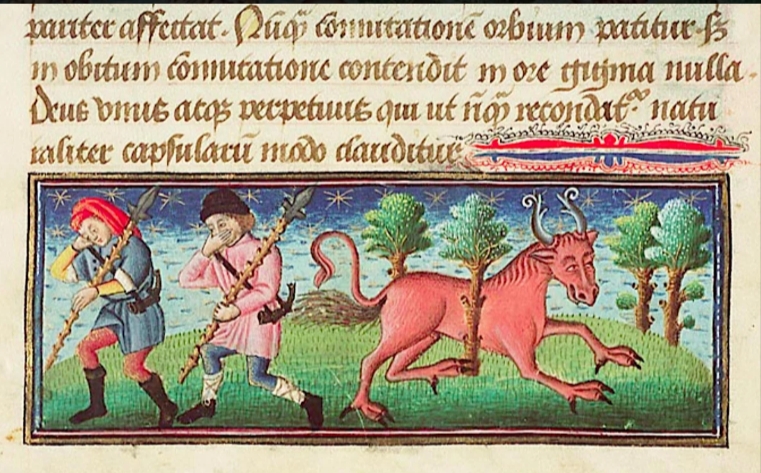 pariter affectat. Nūq̄ cōmutationē orbium patitur s̄
in obitum cōmutatione contendit in ore gigima nulla.
Deus vnus atqꝫ perpetuus qui ut nūq̄ recondat᷑ natu
raliter capsularū modo clauditur